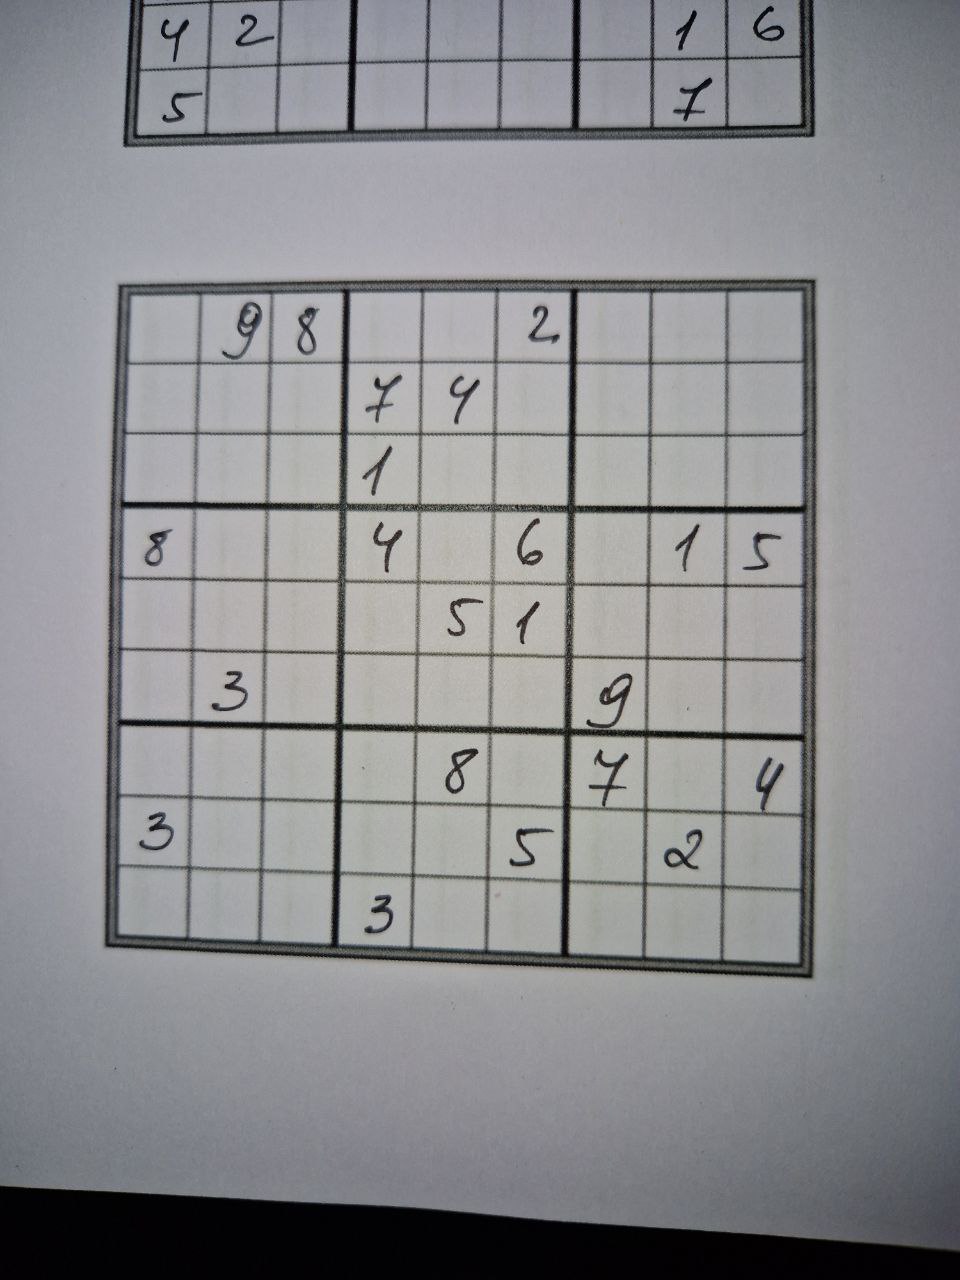 4 2 1 6
5 7
9 8 2
7 4
1
8 4 6 1 5
5 1
3 9
8 7 4
3 5 2
3